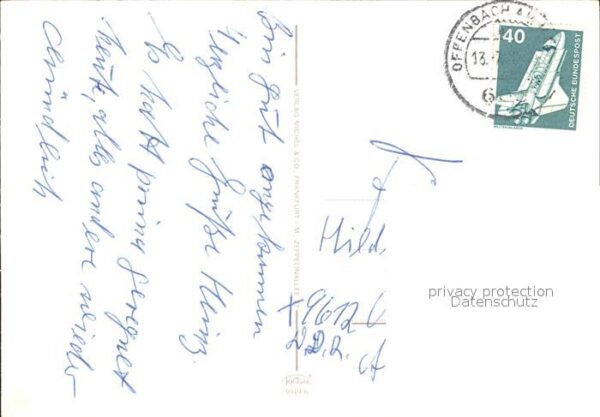 Bin gut angekommen
Herzliche Grüße Heinz.
Es hat prima geregnet
heute, alles andere wieder
mündlich
VERLAG MICHEL & CO., FRANKFURT - M. ZEPPELINALLEE
OFFENBACH AM
13.
40
DEUTSCHE BUNDESPOST
Hild
X 9612
D.D.R.
privacy protection
Datenschutz